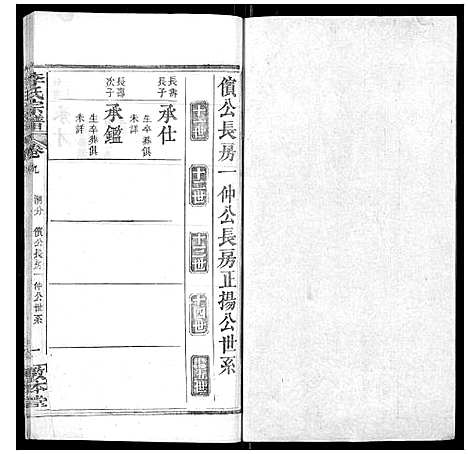 償公長房一仲公長房正揚公世系
十一世
十二世
十三世
十四世
十五世
長壽長子
承仕
生卒葬俱未詳
長壽次子
承鑑
生卒葬俱未詳
李氏宗譜
卷九
償公長房一仲公世系
一
敦本堂